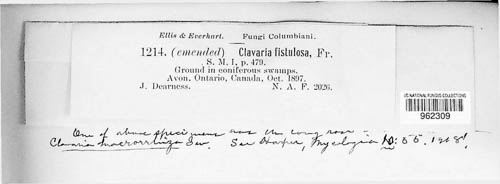 Ellis & Everhart. Fungi Columbiani.
1214. (emended) Clavaria fistulosa, Fr.
S. M. I, p. 479.
Ground in coniferous swamps.
Avon, Ontario, Canada, Oct. 1897.
J. Dearness. N. A. F. 2026.
US NATIONAL FUNGUS COLLECTIONS
962309
One of above specimens was the
Clavaria macrorrhiza Sw. See Harper, Mycologia 10: 55. 1918!